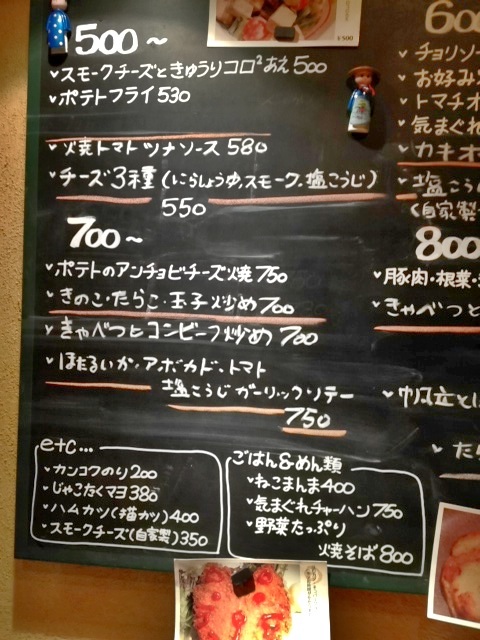 500～
・スモークチーズときゅうりコロ²あえ 500
・ポテトフライ 530
・火焼トマトツナソース 580
・チーズ3種(にらしょうゆ,スモーク,塩こうじ)
550
700～
・ポテトのアンチョビチーズ火焼 750
・きのこ・たらこ・玉子炒め 700
・きゃべつとコンビーフ炒め 700
・ほたるいか・アボカド・トマト
塩こうじガーリックソテー
750
etc...
・カンコクのり 200
・じゃこたくマヨ 380
・ハムカツ(猫カツ) 400
・スモークチーズ(自家製) 350
ごはん&めん類
・ねこまんま 400
・気まぐれチャーハン 750
・野菜たっぷり
火焼そば 800
600
・チョリソー
・お好み
・トマチオ
・気まぐれ
・カキオ
・塩こう
(自家製
800
・豚肉・根菜・
・きゃべつと
・帆立と
・たら
¥500